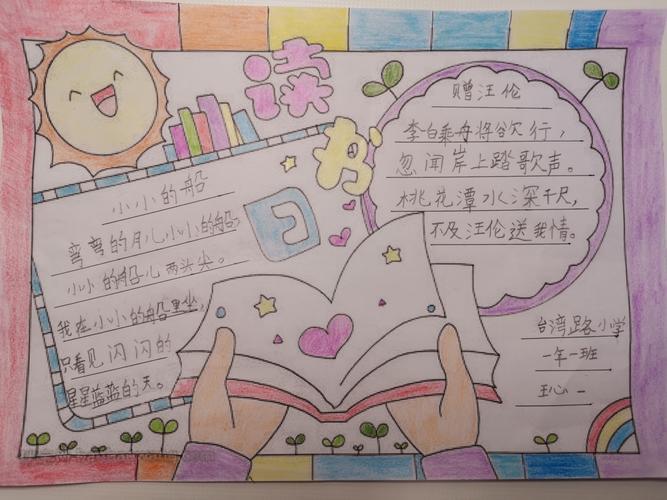 读书日
小小的船
弯弯的月儿小小的船,
小小的船儿两头尖。
我在小小的船里坐,
只看见闪闪的
星星蓝蓝的天。
赠汪伦
李白乘舟将欲行,
忽闻岸上踏歌声。
桃花潭水深千尺,
不及汪伦送我情。
台湾路小学
一年一班
王心一